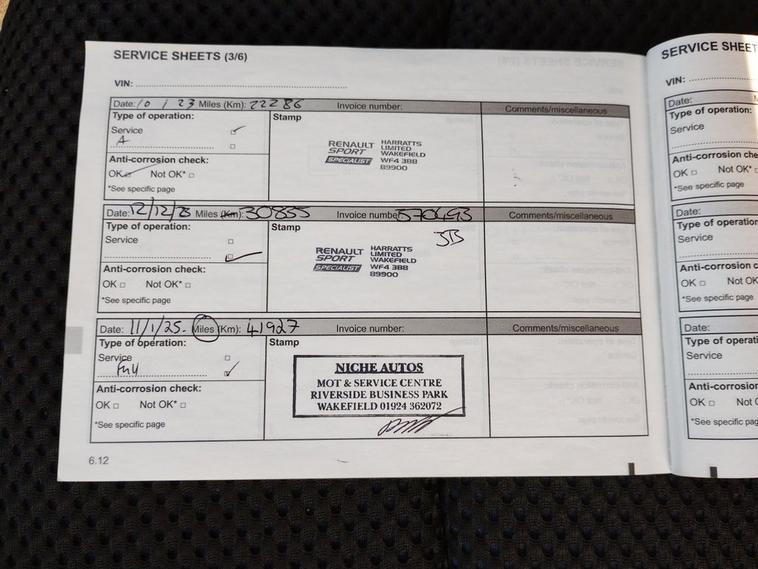 SERVICE SHEETS (3/6)
VIN:
Date: 10 / 23 Miles (Km): 22286 Invoice number: Comments/miscellaneous
Type of operation: Stamp
Service
A
Anti-corrosion check:
OK Not OK*
*See specific page
RENAULT SPORT SPECIALIST
HARRATTS
LIMITED
WAKEFIELD
WF4 3BB
89900
Date: 12/12/23 Miles (Km): 30855 Invoice number 570493 Comments/miscellaneous
Type of operation: Stamp
Service
Anti-corrosion check:
OK Not OK*
*See specific page
RENAULT SPORT SPECIALIST
HARRATTS
LIMITED
WAKEFIELD
WF4 3BB
89900
Date: 11/1/25. Miles (Km): 41927 Invoice number: Comments/miscellaneous
Type of operation: Stamp
Service
Full
Anti-corrosion check:
OK Not OK*
*See specific page
NICHE AUTOS
MOT & SERVICE CENTRE
RIVERSIDE BUSINESS PARK
WAKEFIELD 01924 362072
6.12
SERVICE SHEET
VIN:
Date:
Type of operation
Service
Anti-corrosion che
OK Not OK*
*See specific page
Date:
Type of operation
Service
Anti-corrosion c
OK Not OK
*See specific page
Date:
Type of operati
Service
Anti-corrosion
OK Not
*See specific pag